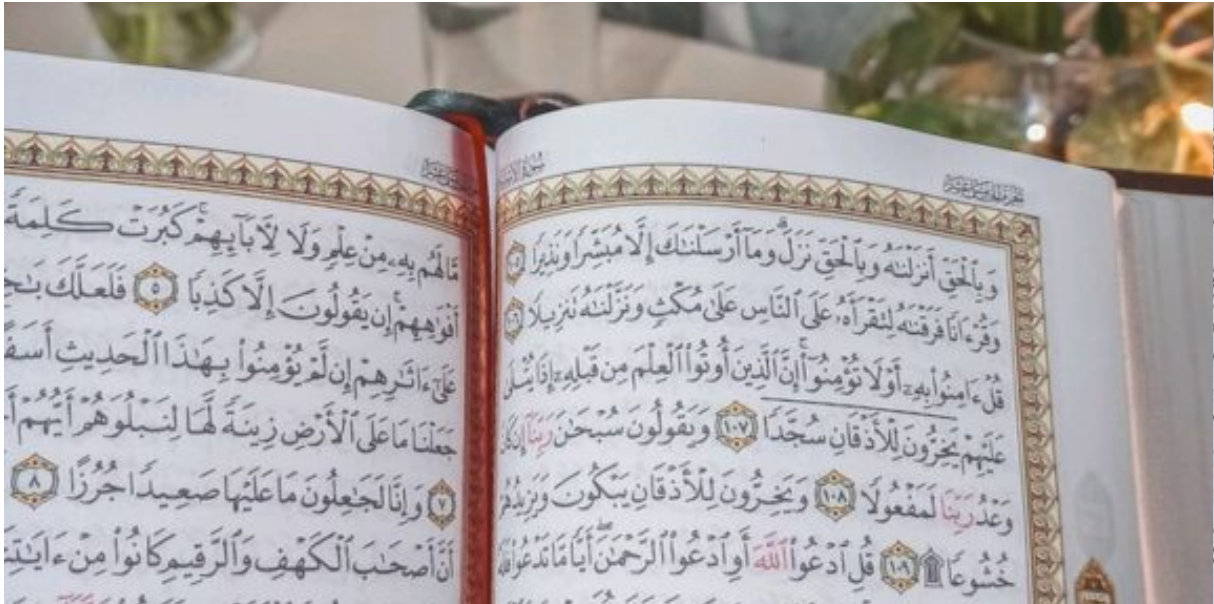 الجزء الخامس عشر
سورة الإسراء
وَبِٱلْحَقِّ أَنزَلْنَٰهُ وَبِٱلْحَقِّ نَزَلَ ۗ وَمَآ أَرْسَلْنَٰكَ إِلَّا مُبَشِّرًا وَنَذِيرًا ١٠٥
وَقُرْءَانًا فَرَقْنَٰهُ لِتَقْرَأَهُۥ عَلَى ٱلنَّاسِ عَلَىٰ مُكْثٍ وَنَزَّلْنَٰهُ تَنزِيلًا ١٠٦
قُلْ ءَامِنُوا۟ بِهِۦٓ أَوْ لَا تُؤْمِنُوٓا۟ ۚ إِنَّ ٱلَّذِينَ أُوتُوا۟ ٱلْعِلْمَ مِن قَبْلِهِۦٓ إِذَا يُتْلَىٰ
عَلَيْهِمْ يَخِرُّونَ لِلْأَذْقَانِ سُجَّدًا ١٠٧ وَيَقُولُونَ سُبْحَٰنَ رَبِّنَآ إِن كَانَ
وَعْدُ رَبِّنَا لَمَفْعُولًا ١٠٨ وَيَخِرُّونَ لِلْأَذْقَانِ يَبْكُونَ وَيَزِيدُهُمْ
خُشُوعًا ۩ ١٠٩ قُلِ ٱدْعُوا۟ ٱللَّهَ أَوِ ٱدْعُوا۟ ٱلرَّحْمَٰنَ ۖ أَيًّا مَّا تَدْعُوا۟ فَلَهُ
مَّا لَهُم بِهِۦ مِنْ عِلْمٍ وَلَا لِـَٔابَآئِهِمْ ۚ كَبُرَتْ كَلِمَةً
أَفْوَٰهِهِمْ ۚ إِن يَقُولُونَ إِلَّا كَذِبًا ٥ فَلَعَلَّكَ
عَلَىٰٓ ءَاثَٰرِهِمْ إِن لَّمْ يُؤْمِنُوا۟ بِهَٰذَا ٱلْحَدِيثِ
جَعَلْنَا مَا عَلَى ٱلْأَرْضِ زِينَةً لَّهَا لِنَبْلُوَهُمْ أَيُّهُمْ
٧ وَإِنَّا لَجَٰعِلُونَ مَا عَلَيْهَا صَعِيدًا جُرُزًا ٨
أَنَّ أَصْحَٰبَ ٱلْكَهْفِ وَٱلرَّقِيمِ كَانُوا۟ مِنْ